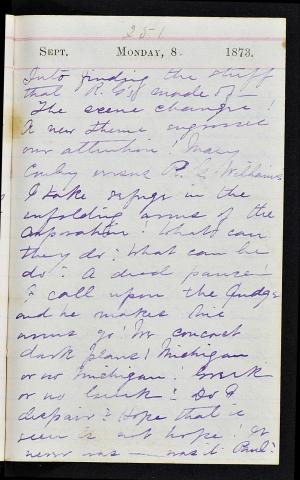 251
SEPT. MONDAY, 8. 1873.
Into finding the stuff
that R. G's made of —
The scene changes!
A new theme engrosses
our attention! Mary
versus R. G. Williams
I take refuge in the
unfolding arms of the
Corporation! What can
they do? What can he
do? A dead pause!
I call upon the Judge
and he makes the
go! We concoct
dark plans! Michigan
or no Michigan!
or no! Do I
despair? Hope that is
seen is not hope! It
never was — was it Paul?